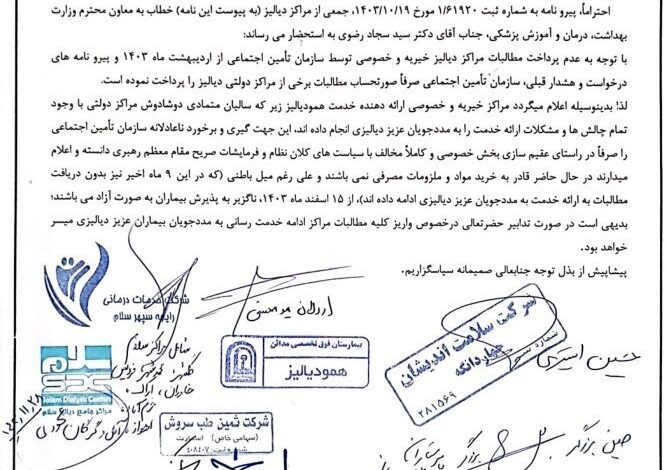 احتراماً، پیرو نامه به شماره ثبت ۱/۶۱۹۲۰ مورخ ۱۴۰۳/۱۰/۱۹، جمعی از مراکز دیالیز (به پیوست این نامه) خطاب به معاون محترم وزارت
بهداشت، درمان و آموزش پزشکی، جناب آقای دکتر سید سجاد رضوی به استحضار می‌رساند:
با توجه به عدم پرداخت مطالبات مراکز دیالیز خیریه و خصوصی توسط سازمان تأمین اجتماعی از اردیبهشت ماه ۱۴۰۳ و پیرو نامه های
درخواست و هشدار قبلی، سازمان تأمین اجتماعی صرفاً صورتحساب مطالبات برخی از مراکز دولتی دیالیز را پرداخت نموده است.
لذا بدینوسیله اعلام میگردد مراکز خیریه و خصوصی ارائه دهنده خدمت همودیالیز زیر که سالیان متمادی دوشادوش مراکز دولتی با وجود
تمام چالش ها و مشکلات ارائه خدمت را به مددجویان عزیز دیالیزی انجام داده اند، این جهت گیری و برخورد ناعادلانه سازمان تأمین اجتماعی
را صرفاً در راستای عقیم سازی بخش خصوصی و کاملاً مخالف با سیاست های کلان نظام و فرمایشات صریح مقام معظم رهبری دانسته و اعلام
میدارند در حال حاضر قادر به خرید مواد و ملزومات مصرفی نمی باشند و علی رغم میل باطنی (که در این ۹ ماه اخیر نیز بدون دریافت
مطالبات به ارائه خدمت به مددجویان عزیز دیالیزی ادامه داده اند)، از ۱۵ اسفند ماه ۱۴۰۳، ناگزیر به پذیرش بیماران به صورت آزاد می باشند؛
بدیهی است در صورت تدابیر حضرتعالی درخصوص واریز کلیه مطالبات مراکز ادامه خدمت رسانی به مددجویان بیماران عزیز دیالیزی میسر
خواهد بود.
پیشاپیش از بذل توجه جنابعالی صمیمانه سپاسگزاریم.
شرکت خدمات درمانی
رایحه سپهر سلام
شرکت سلامت اندیشان
جهاردانگه
شماره ثبت
۲۸۱۵۶۹
بیمارستان فوق تخصصی مدائن
همودیالیز
حسین
شامل مراکز سلام
سلام
SDC
Salam Dialysis Centers
مراکز جامع دیالیز سلام
شرکت ثمین طب سروش
(سهامی خاص)